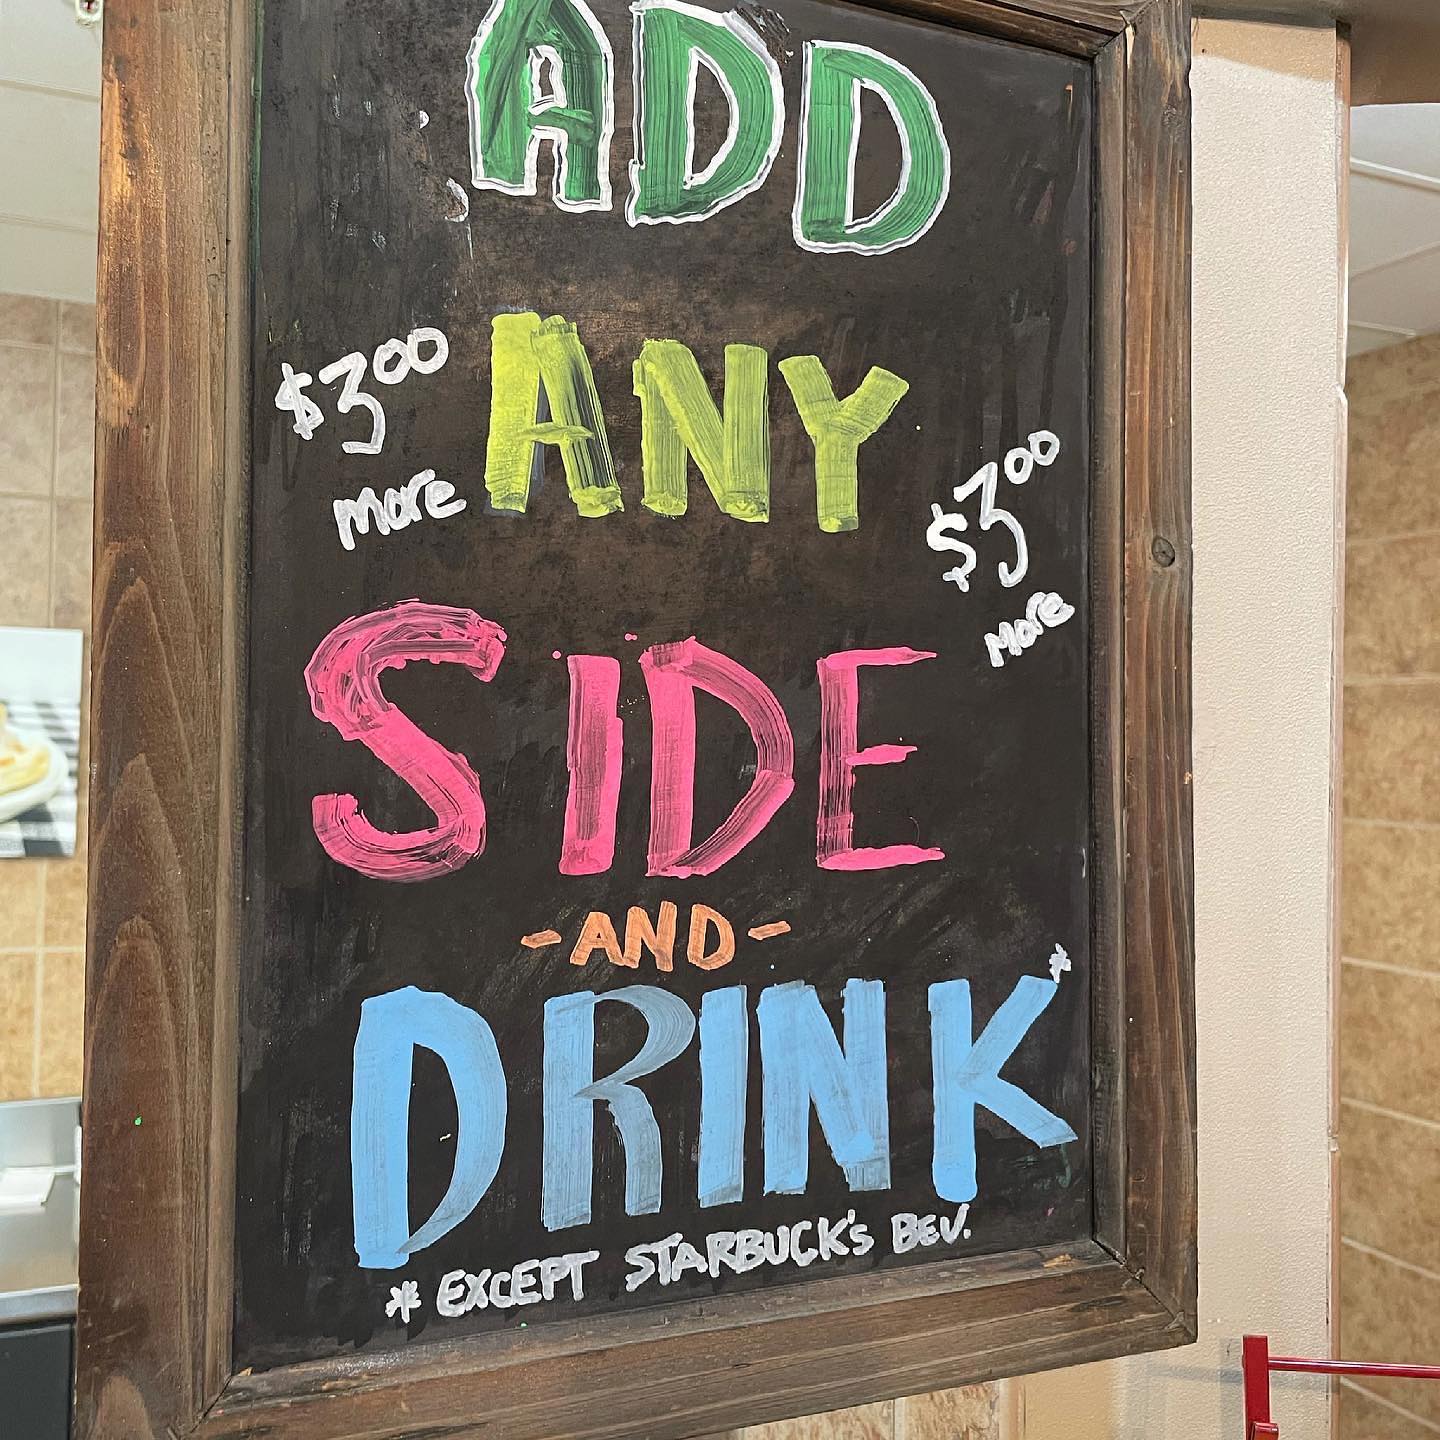 ADD
$3.00
more
ANY
$3.00
more
SIDE
-AND-
DRINK*
* EXCEPT STARBUCK'S BEV.